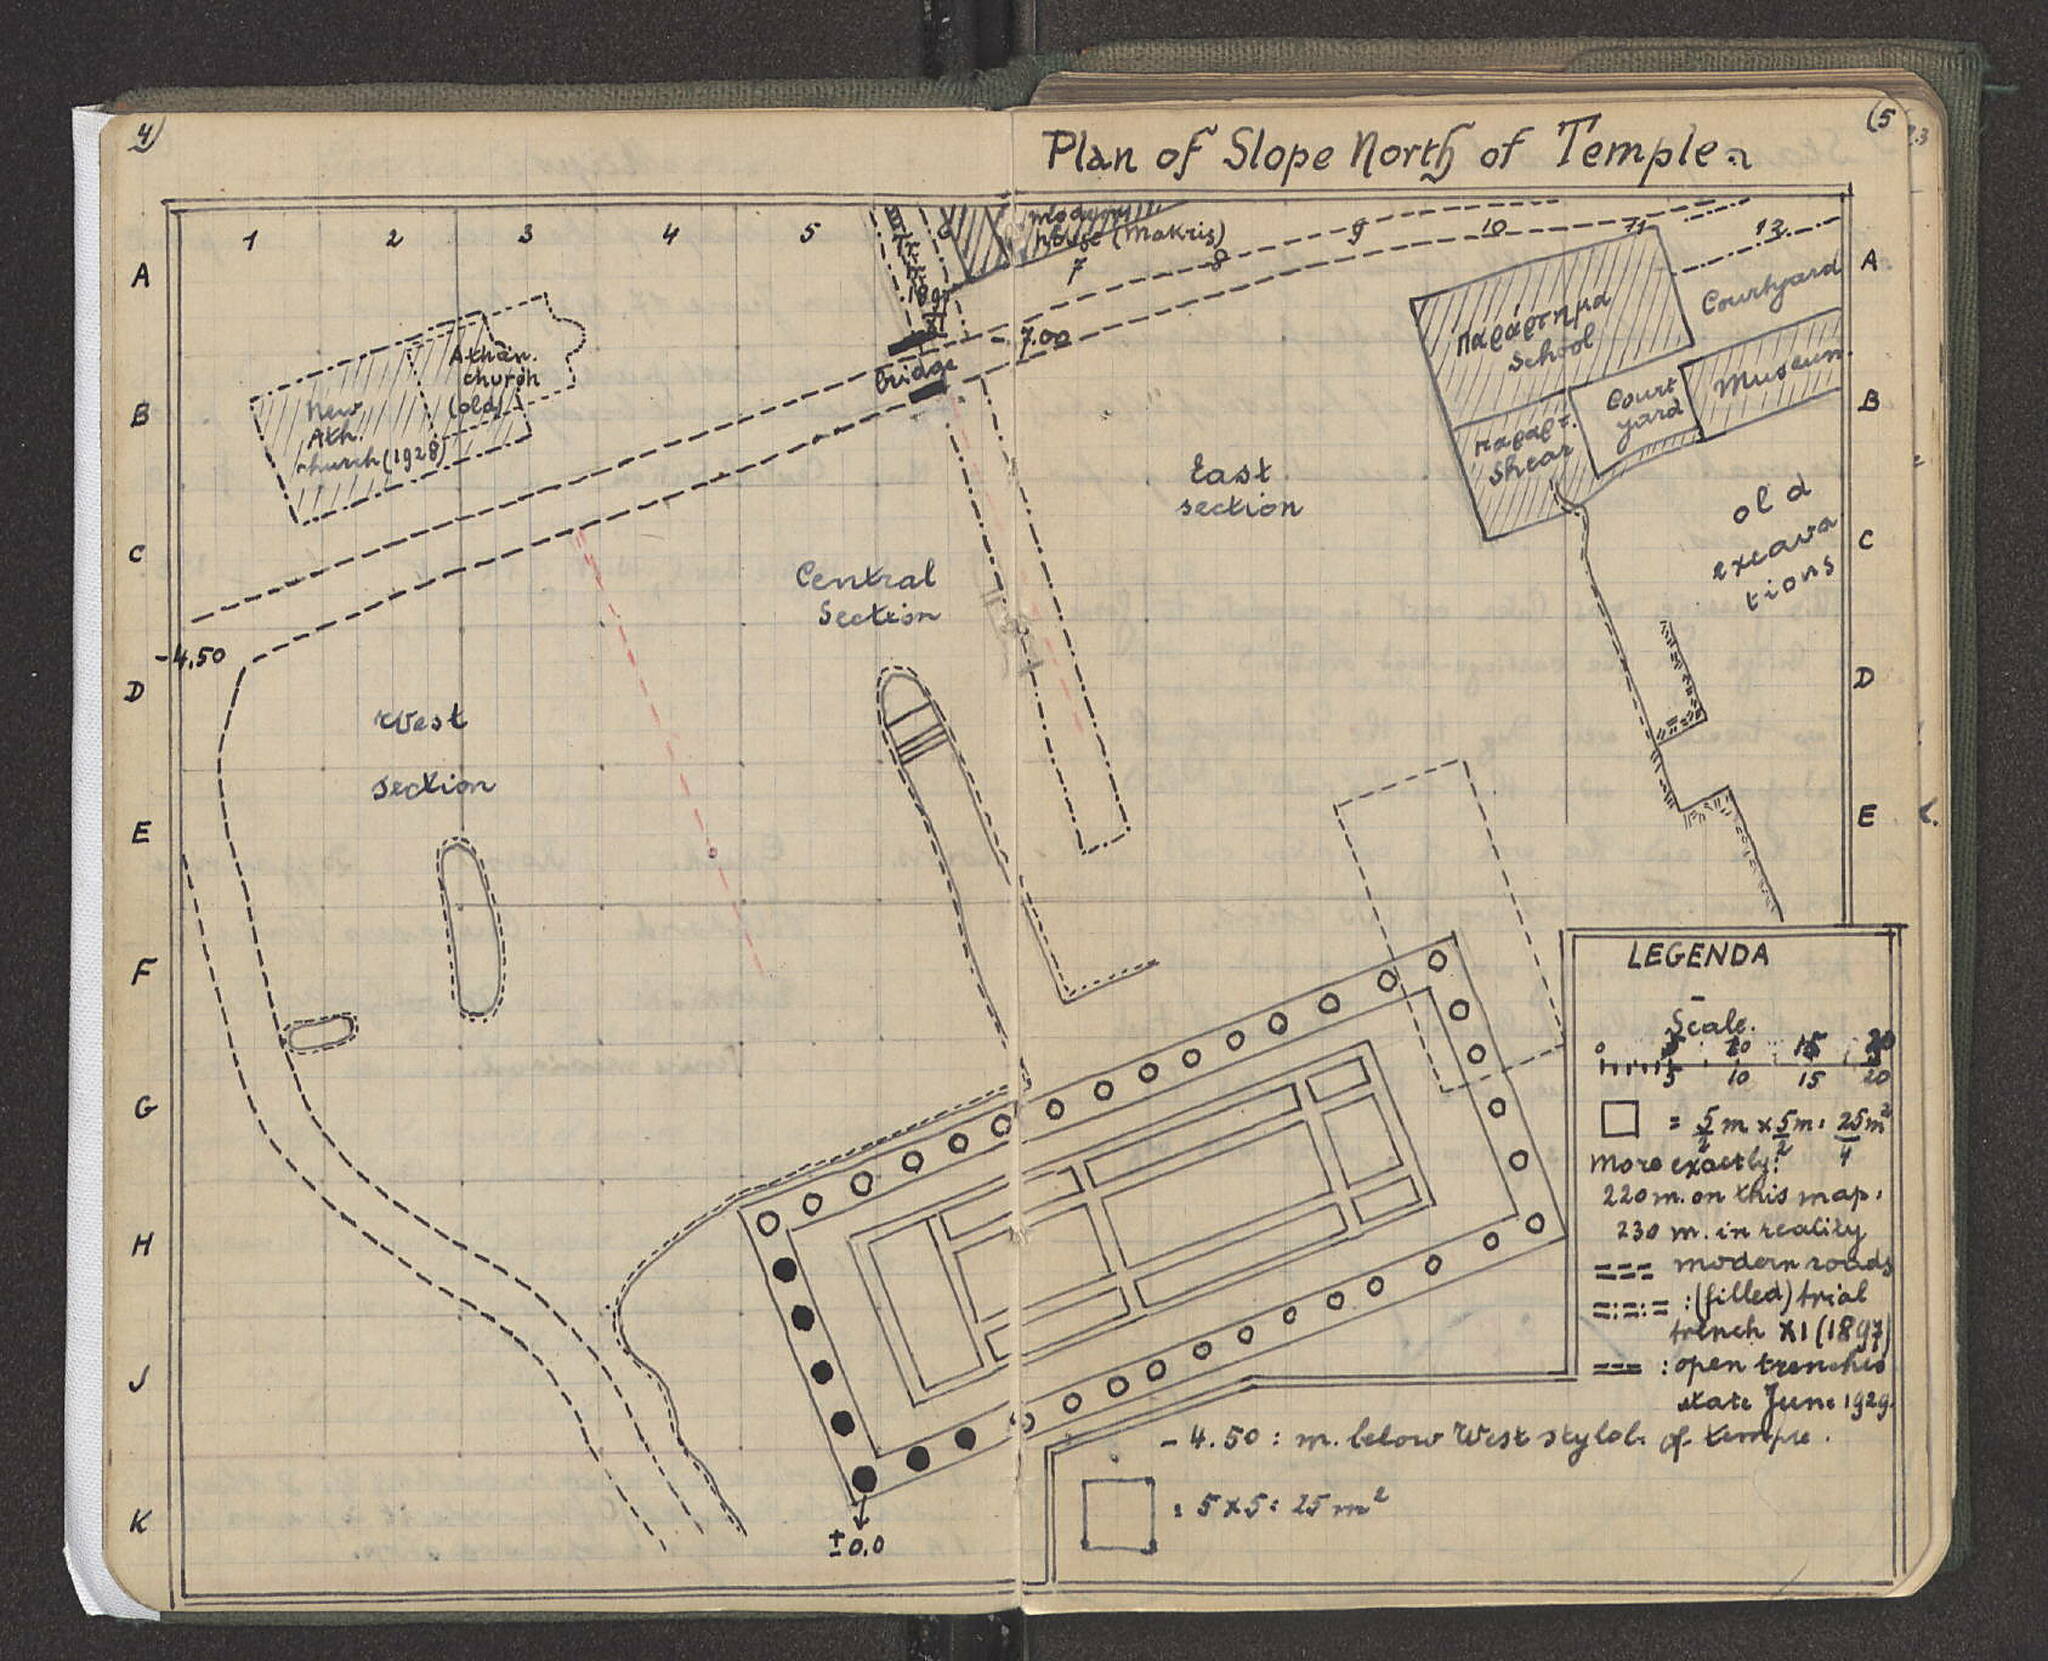 4)
(5
Plan of Slope North of Temple.
1 2 3 4 5 6 7 8 9 10 11 12
A
B
C
D
E
F
G
H
J
K
A
B
C
D
E
house (Makris)
XI
bridge
-7.00
Athan.
church
(old)
New
Ath.
church (1928)
παράρτημα
School
Courtyard
παράρτ.
Shear
Court
yard
Museum
old
excava
tions
East
section
Central
Section
West
section
-4.50
± 0.0
LEGENDA
Scale.
0 5 10 15 20
5 10 15 20
= 5/2 m × 5/2 m = 25/4 m²
More exactly:
220 m. on this map.
230 m. in reality
modern roads
: (filled) trial
trench XI (1897)
: open trenches
state June 1929.
- 4.50 : m. below West stylob. of temple.
= 5 x 5 = 25 m²